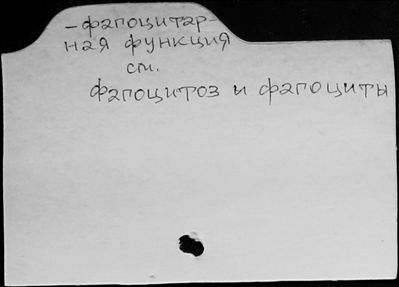 -фагоцитар-
ная функция
см.
фагоцитоз и фагоциты